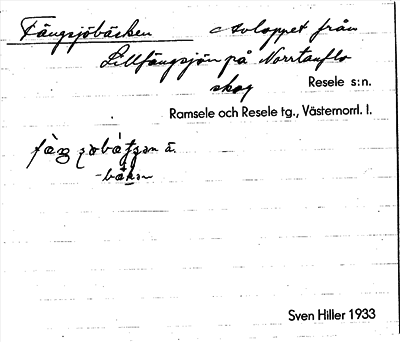 Fängsjöbäcken Avloppet från
Lillfängsjön på Norrtanflo
skog
Resele s:n.
Ramsele och Resele tg., Västernorrl. l.
Sven Hiller 1933